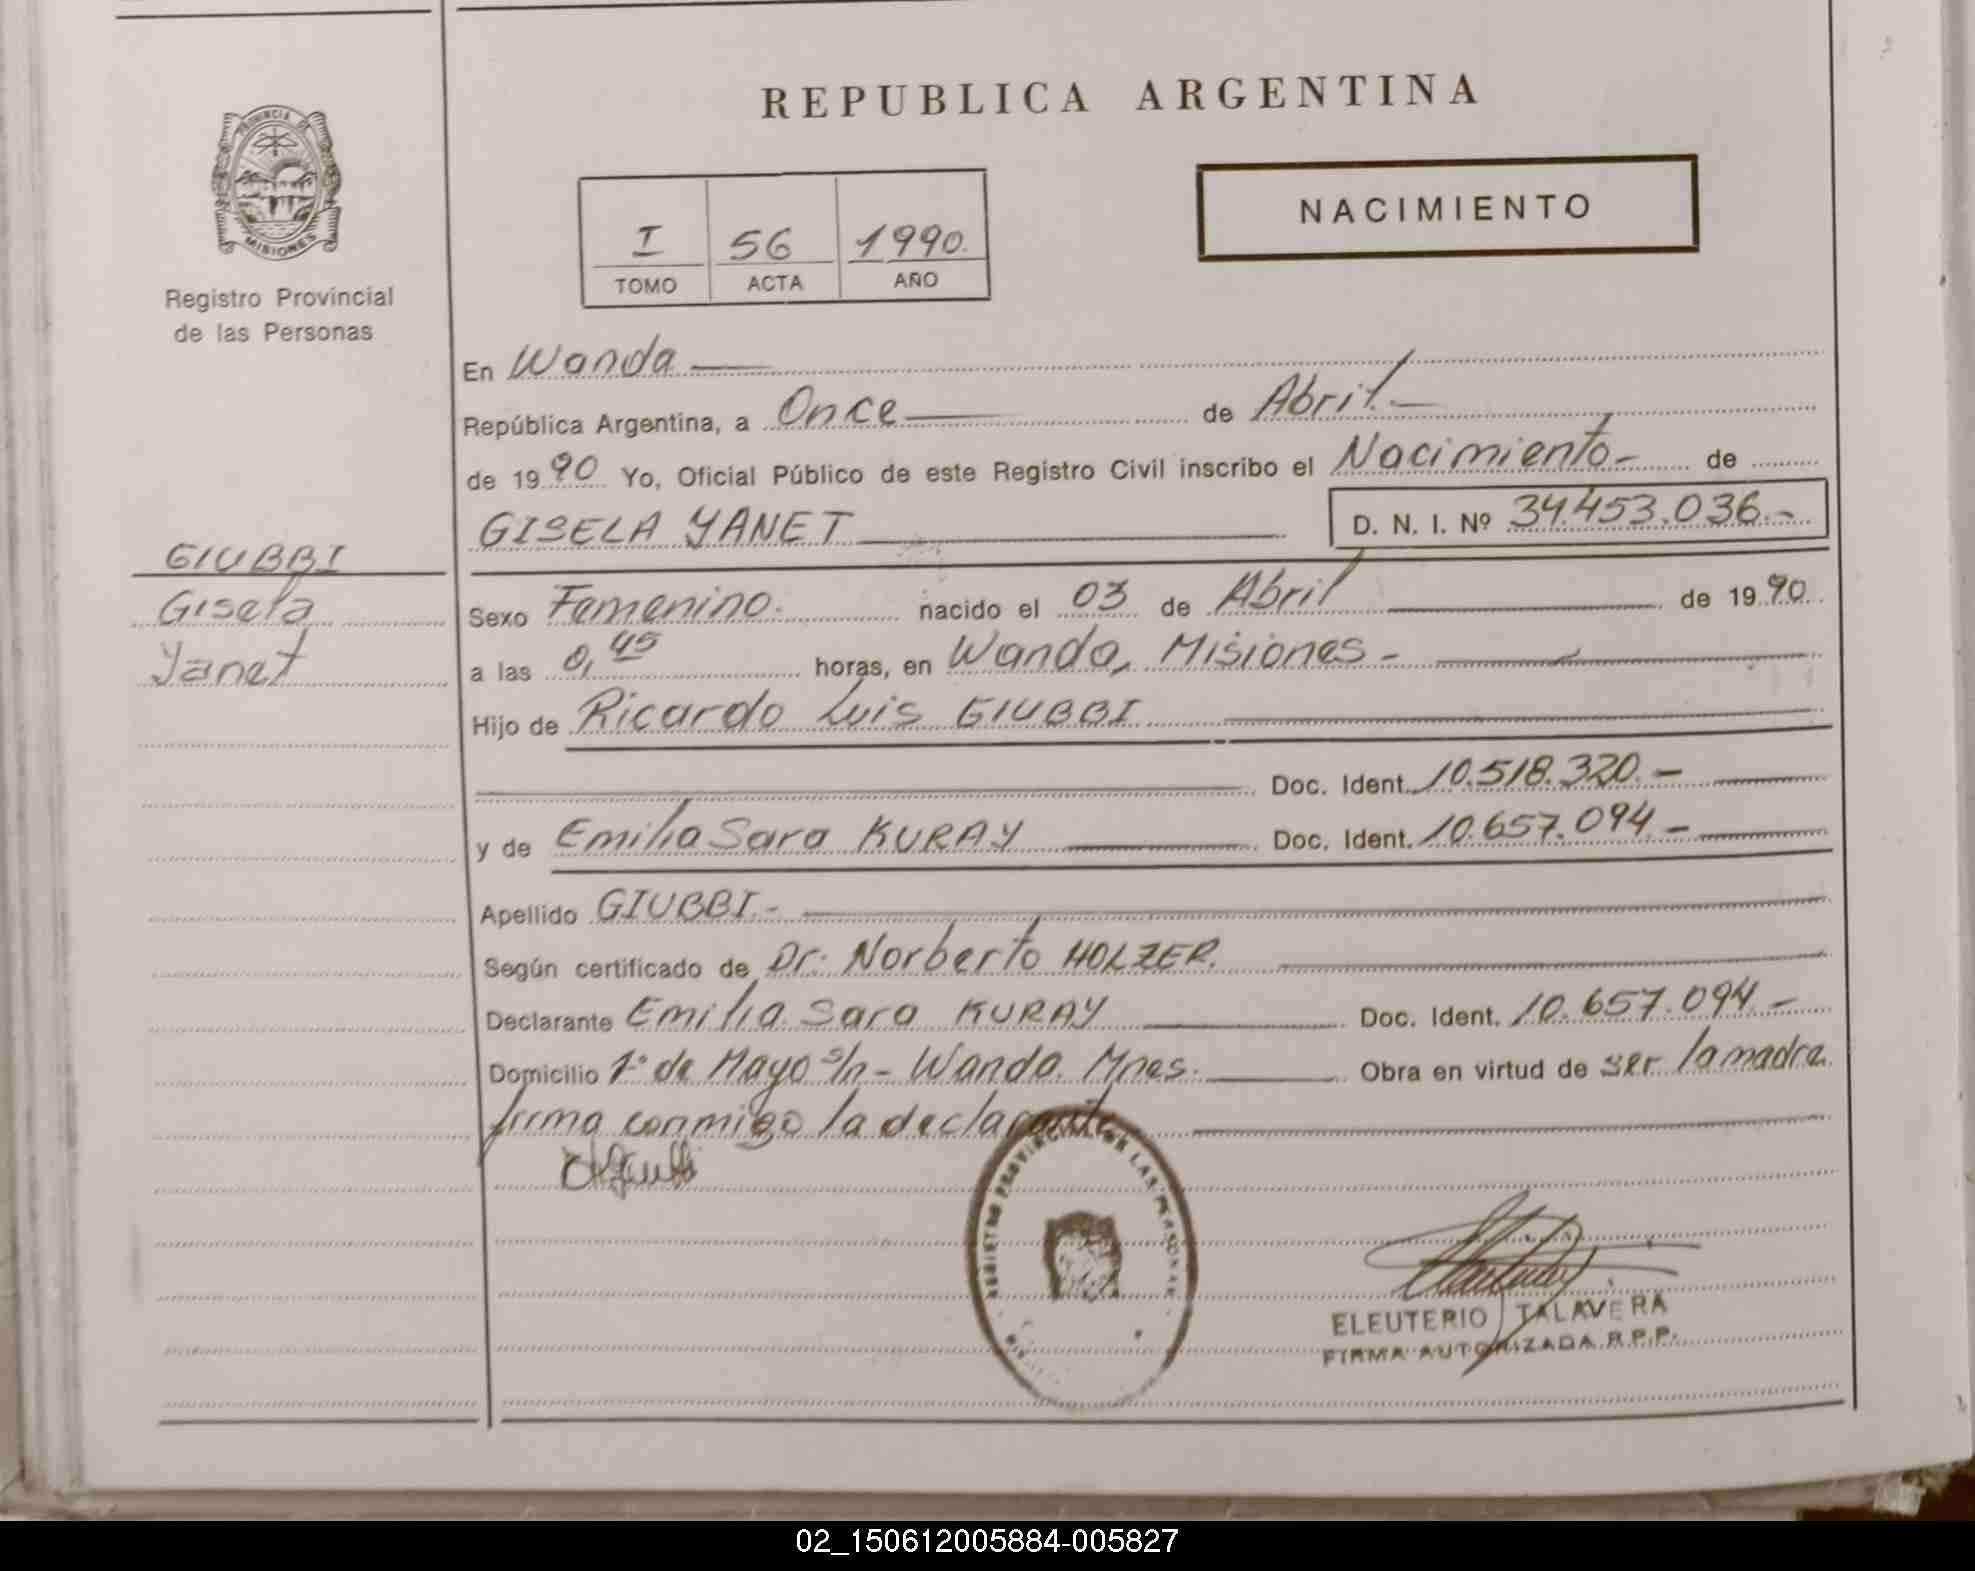 REPUBLICA ARGENTINA
PROVINCIA DE
MISIONES
Registro Provincial
de las Personas
I 56 1990.
TOMO ACTA AÑO
NACIMIENTO
En Wanda
República Argentina, a Once de Abril.-
de 1990 Yo, Oficial Público de este Registro Civil inscribo el Nacimiento- de
GISELA YANET D. N. I. Nº 34.453.036.-
GIUBBI
Gisela
Yanet
Sexo Femenino. nacido el 03 de Abril de 1990.
a las 0,45 horas, en Wanda, Misiones-
Hijo de Ricardo Luis GIUBBI
Doc. Ident. 10.518.320.-
y de Emilia Sara KURAY Doc. Ident. 10.657.094.-
Apellido GIUBBI.-
Según certificado de Dr. Norberto HOLZER.
Declarante Emilia Sara KURAY Doc. Ident. 10.657.094.-
Domicilio 1º de Mayo s/n - Wanda. Mnes. Obra en virtud de ser la madre.
firma conmigo la declarante
REGISTRO PROVINCIAL DE LAS PERSONAS
ELEUTERIO TALAVERA
FIRMA AUTORIZADA R.P.P.
02_150612005884-005827